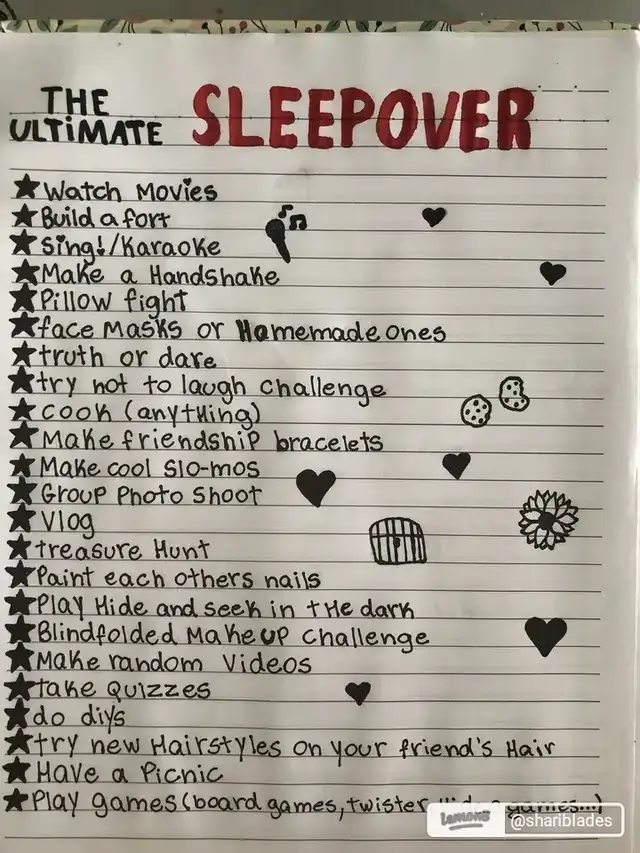 THE ULTiMATE SLEEPOVER
★Watch Movies
★Build a fort
★Sing!/Karaoke
★Make a Handshake
★Pillow fight
★face Masks or Homemade ones
★truth or dare
★try not to laugh challenge
★cook (anytHing)
★Make friendship bracelets
★Make cool Slo-mos
★Group Photo Shoot
★Vlog
★treasure Hunt
★Paint each others nails
★Play Hide and seek in tHe dark
★Blindfolded Makeup challenge
★Make random Videos
★take Quizzes
★do diys
★try new Hairstyles on your friend's Hair
★Have a Picnic
★Play games (board games, twister, games...)
lemon8 @shariblades